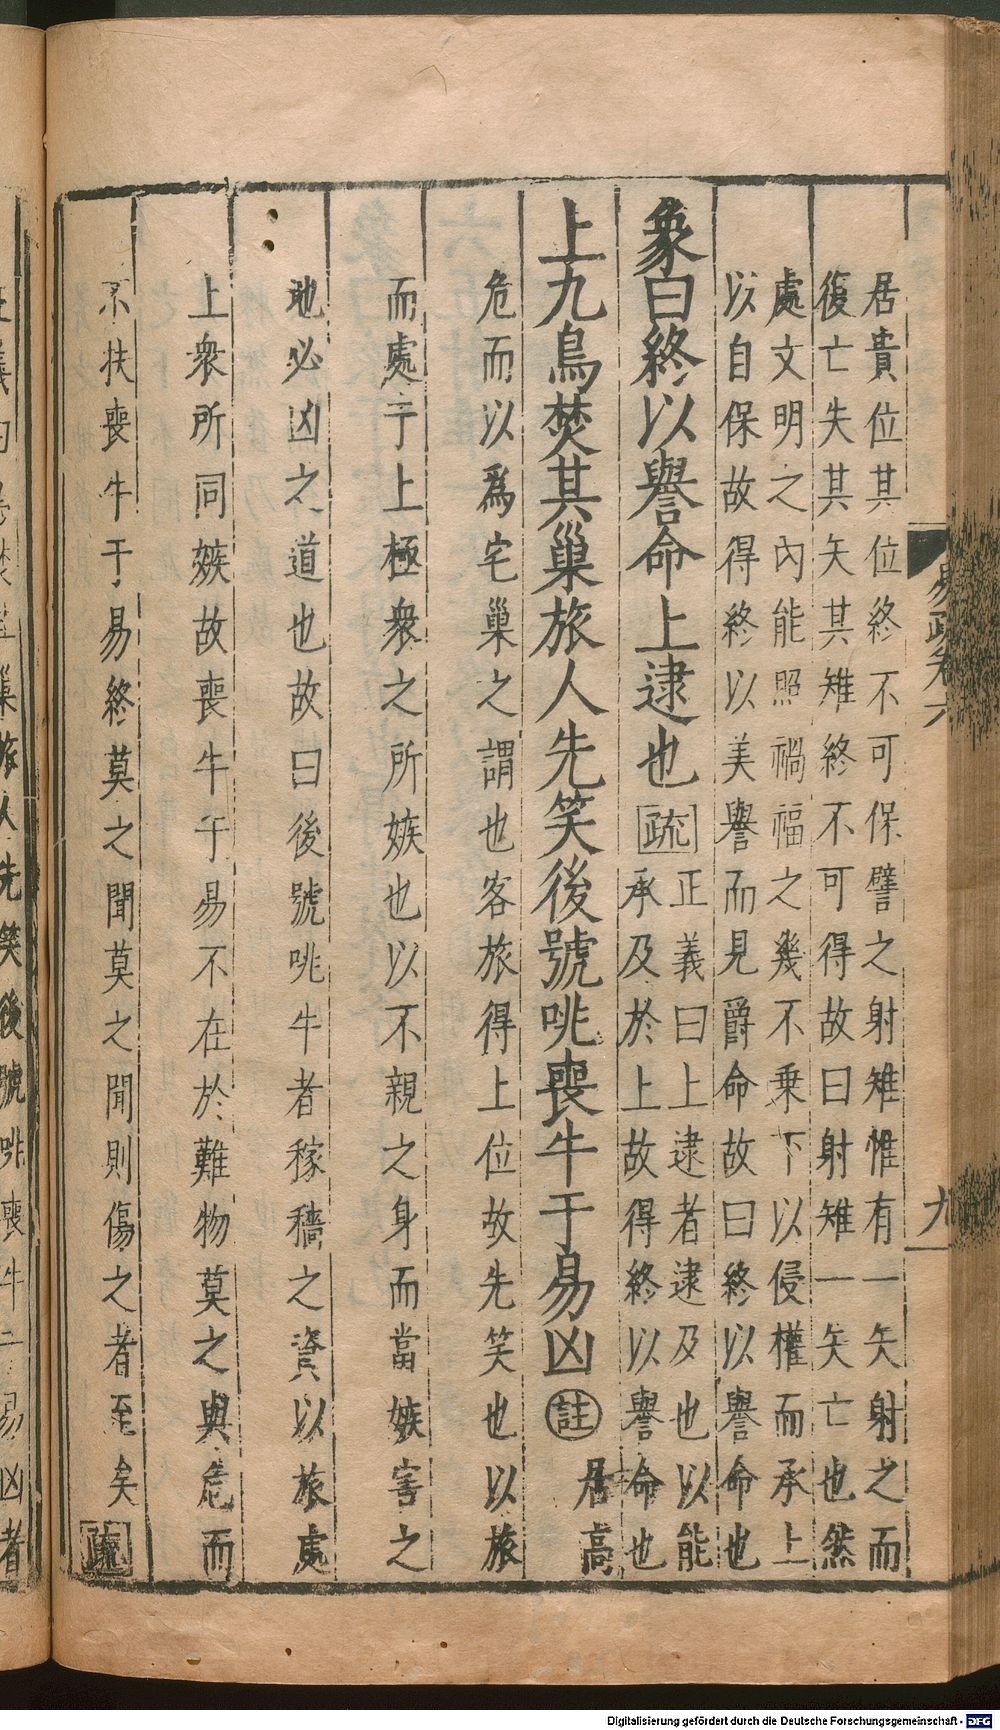 居貴位其位終不可保譬之射雉惟有一矢射之而
復亡失其矢其雉終不可得故曰射雉一矢亡也然
處文明之內能照禍福之幾不乗下以侵權而承上
以自保故得終以美譽而見爵命故曰終以譽命也
象曰終以譽命上逮也疏正義曰上逮者逮及也以能
承及於上故得終以譽命也
上九鳥焚其巢旅人先笑後號咷喪牛于易凶註居高
危而以爲宅巢之謂也客旅得上位故先笑也以旅
而處于上極衆之所嫉也以不親之身而當嫉害之
地必凶之道也故曰後號咷牛者稼穡之資以旅處
上衆所同嫉故喪牛于易不在於難物莫之與危而
不扶喪牛于易終莫之聞莫之聞則傷之者至矣疏
易疏卷六
九
巢旅人先笑後號咷喪牛于易凶者
Digitalisierung gefördert durch die Deutsche Forschungsgemeinschaft - DFG